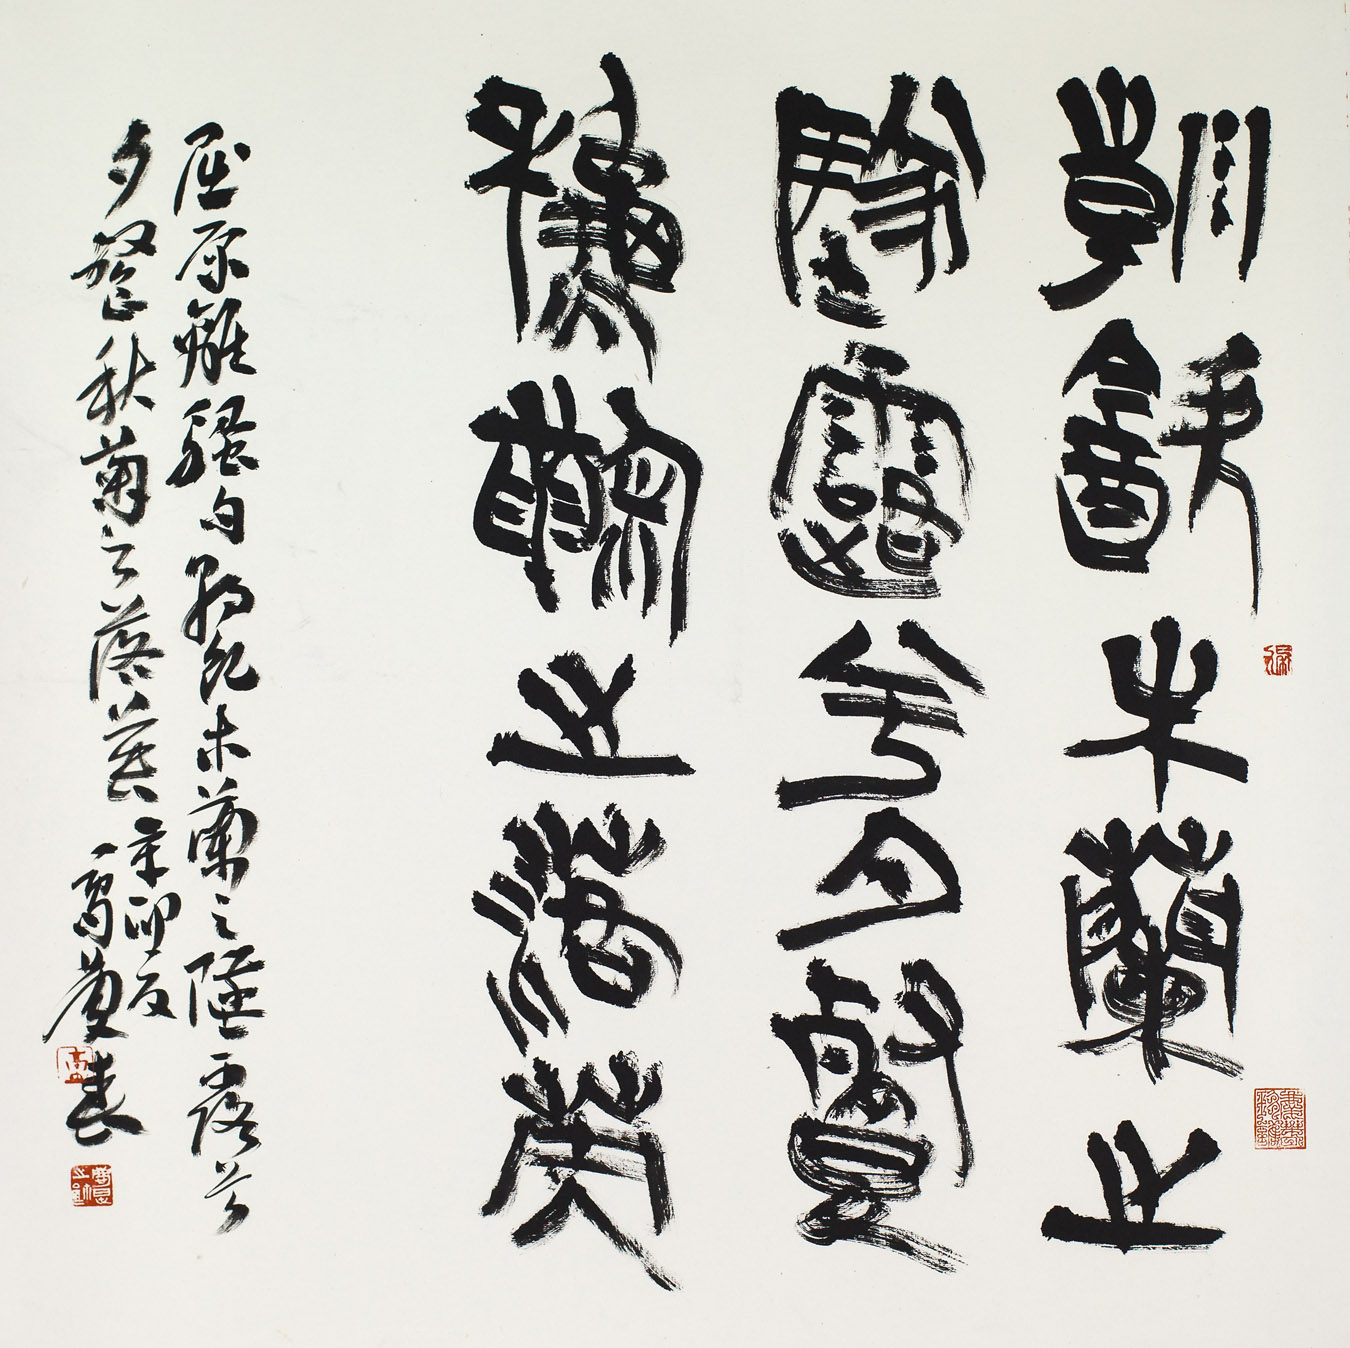 朝飲木蘭之
墜露兮夕餐
秋菊之落英
屈原離騷句朝飲木蘭之墜露兮
夕餐秋菊之落英辛卯夏
高慶春